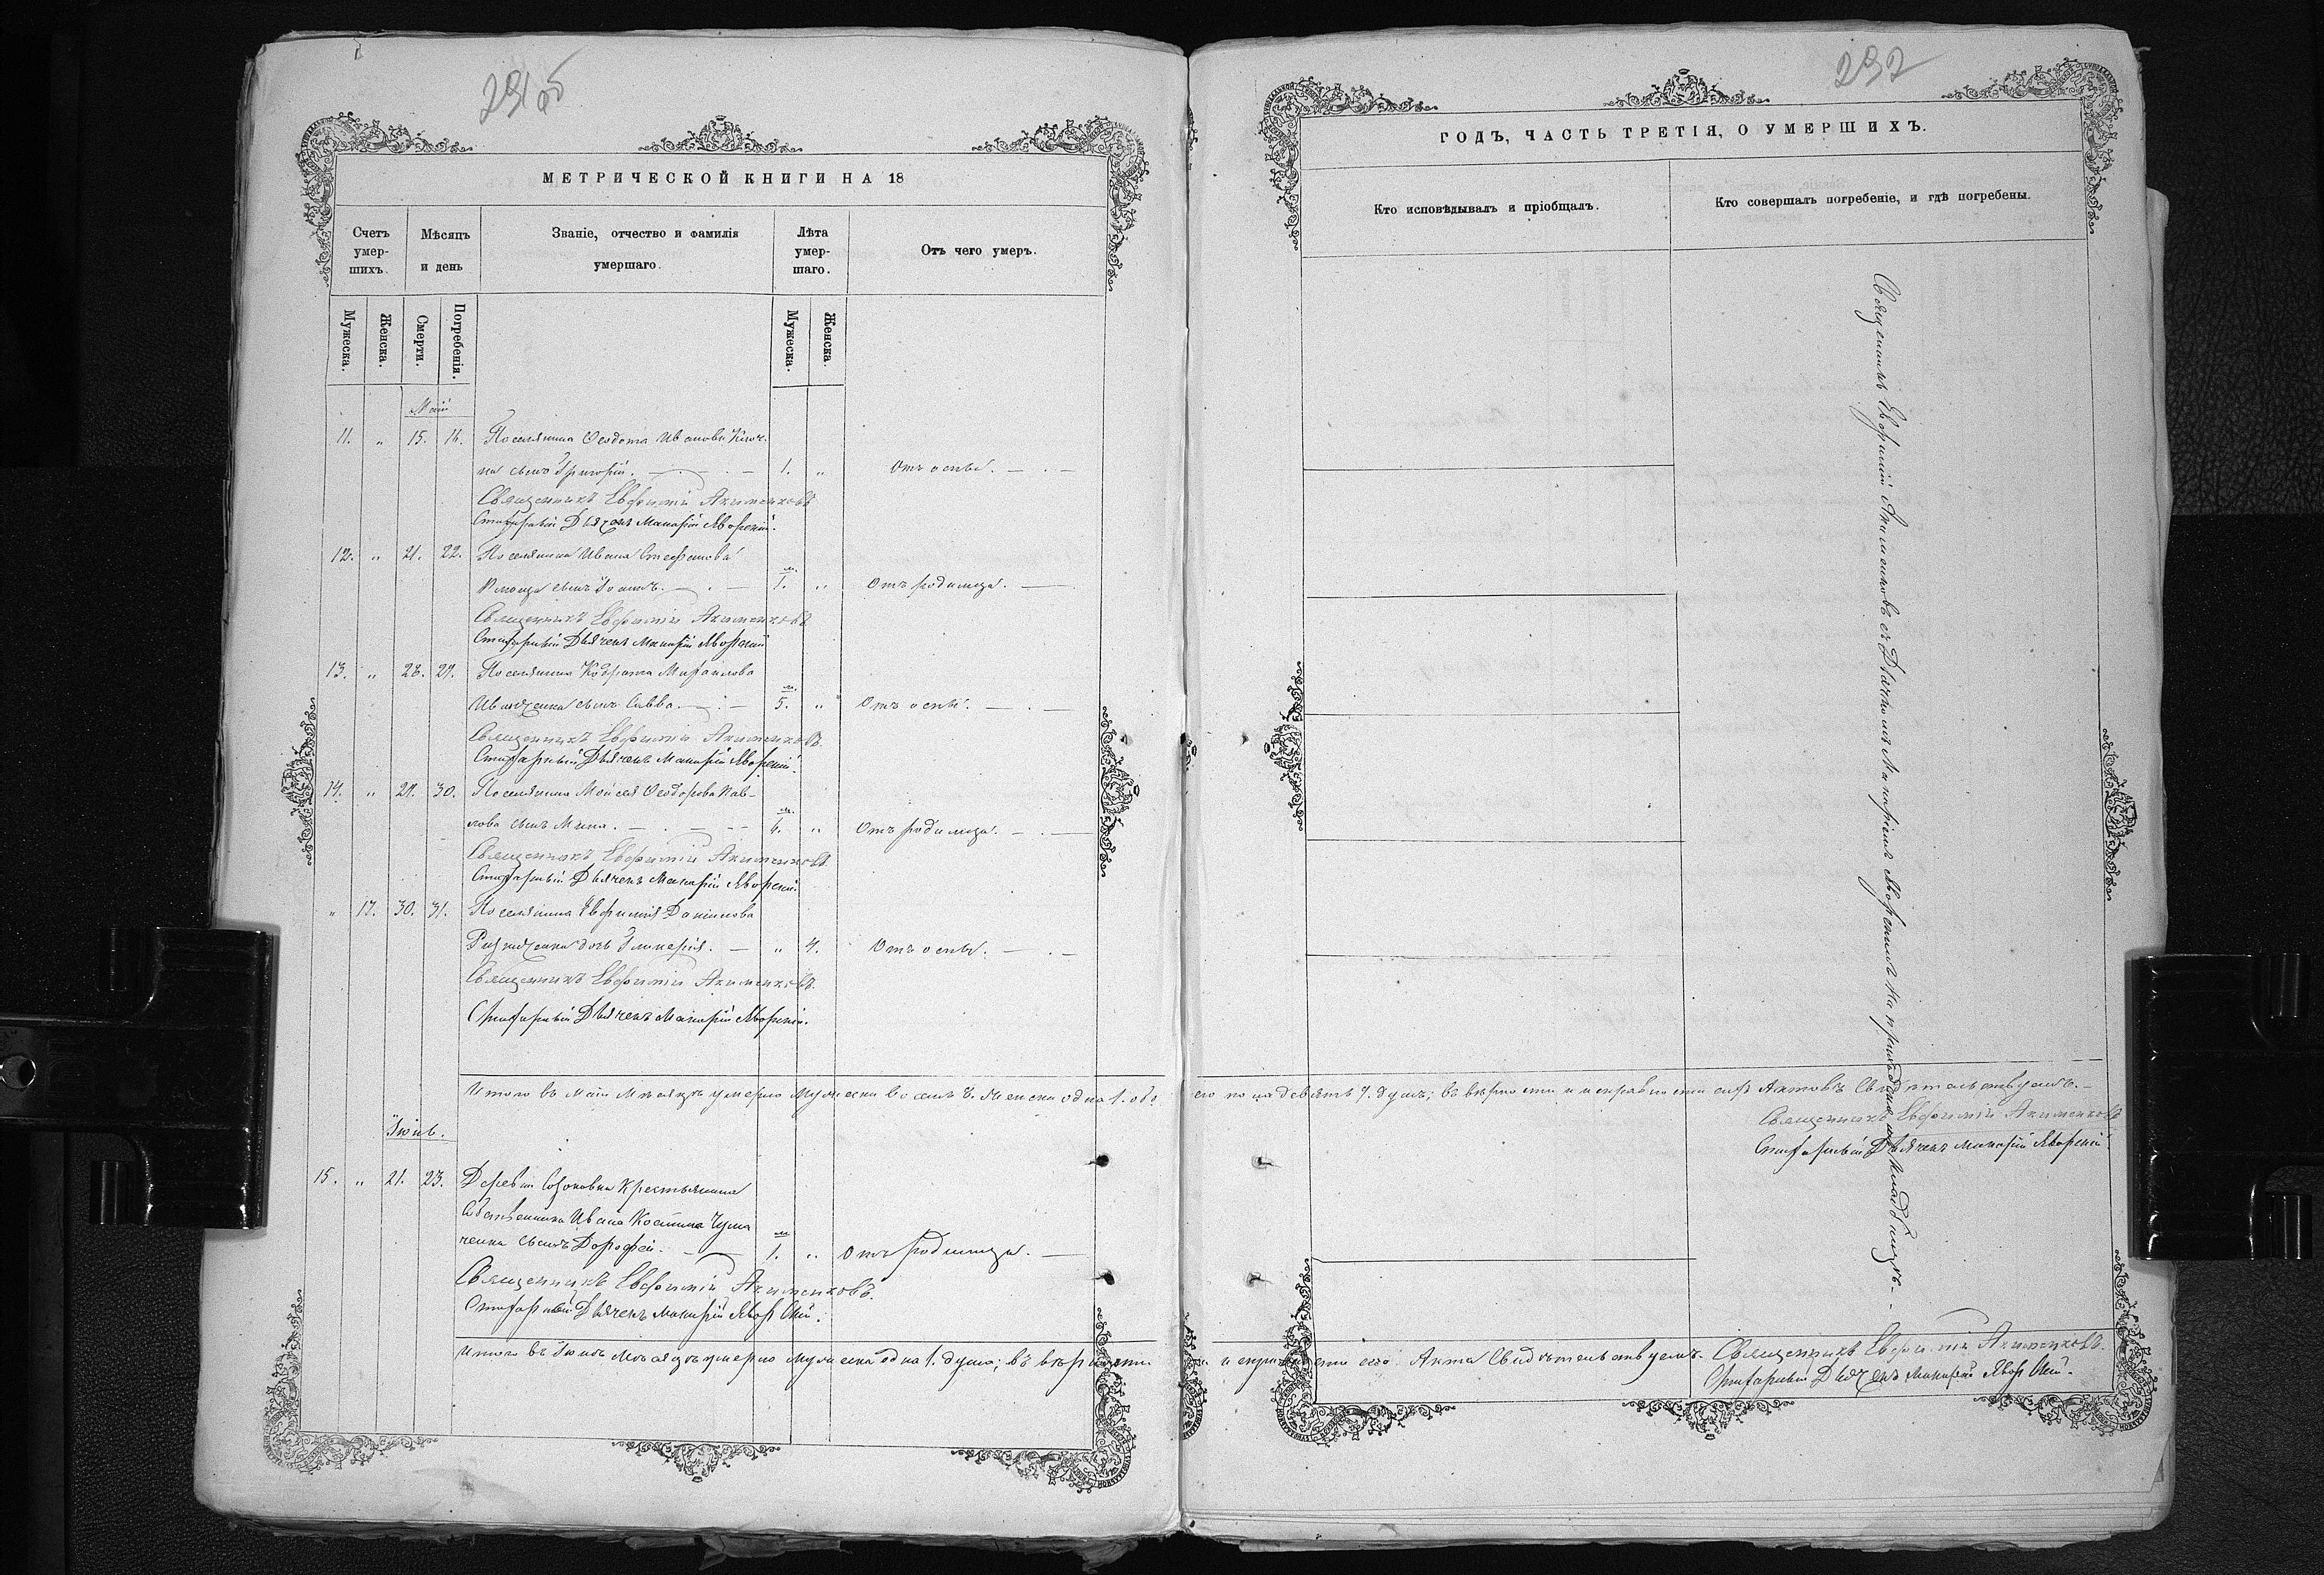 291 об
МЕТРИЧЕСКОЙ КНИГИ НА 18
Счетъ умер-шихъ.
Мѣсяцъ и день
Званіе, отчество и фамилія умершаго.
Лѣта умер-шаго.
Отъ чего умеръ.
Мужеска.
Женска.
Смерти.
Погребенія.
Мужеска.
Женска.
Май
11. „ 15. 16. Поселянина Ѳеодота Иванова
сынъ Григорій. 1. „ Отъ оспы.
Священникъ Евфимій Акименковъ
Стихарный Дьячекъ Макарій Яворскій.
12. „ 21. 22. Поселянина Ивана Стефанова
сынъ м. 1. „ Отъ родимца.
Священникъ Евфимій Акименковъ
Стихарный Дьячекъ Макарій Яворскій
13. „ 28. 29. Поселянина Кодрата Михайлова
Иващенка сынъ Савва. м. 5. „ Отъ оспы.
Священникъ Евфимій Акименковъ.
Стихарный Дьячекъ Макарій Яворскій.
14. „ 29. 30. Поселянина Моисея Ѳеодорова Пав-
лова сынъ м. 6. „ Отъ родимца.
Священникъ Евфимій Акименковъ
Стихарный Дьячекъ Макарій Яворскій
„ 17. 30. 31. Поселянина Евфимія
дочь Гликерія. „ 4. Отъ оспы.
Священникъ Евфимій Акименковъ.
Стихарный Дьячекъ Макарій Яворскій.
Итого въ Маѣ Мѣсяцѣ умерло Мужеска восемь 8. Женска одна 1. обо-
Іюнь.
15. „ 21. 23. Деревни Крестьянина
Собственника Ивана Костина
ченка сынъ Дорофей. м. 1. „ Отъ родимца.
Священникъ Евфимій Акименковъ.
Стихарный Дьячекъ Макарій Яворскій.
Итого въ Іюнѣ Мѣсяцѣ умерло мужеска одна 1. душа; въ вѣрности
292
ГОДЪ, ЧАСТЬ ТРЕТІЯ, О УМЕРШИХЪ.
Кто исповѣдывалъ и пріобщалъ.
Кто совершалъ погребеніе, и гдѣ погребены.
Священникъ Евфимій Акименковъ съ Дьячкомъ Макаріемъ Яворскимъ на приходскомъ кладбищѣ.
его пола девять 9. душъ; въ вѣрности и исправности сихъ Актовъ Свидѣтельствуемъ.
Священникъ Евфимій Акименковъ
Стихарный Дьячекъ Макарій Яворскій.
и исправности сего Акта Свидѣтельствуемъ. Священникъ Евфимій Акименковъ.
Стихарный Дьячекъ Макарій Яворскій.